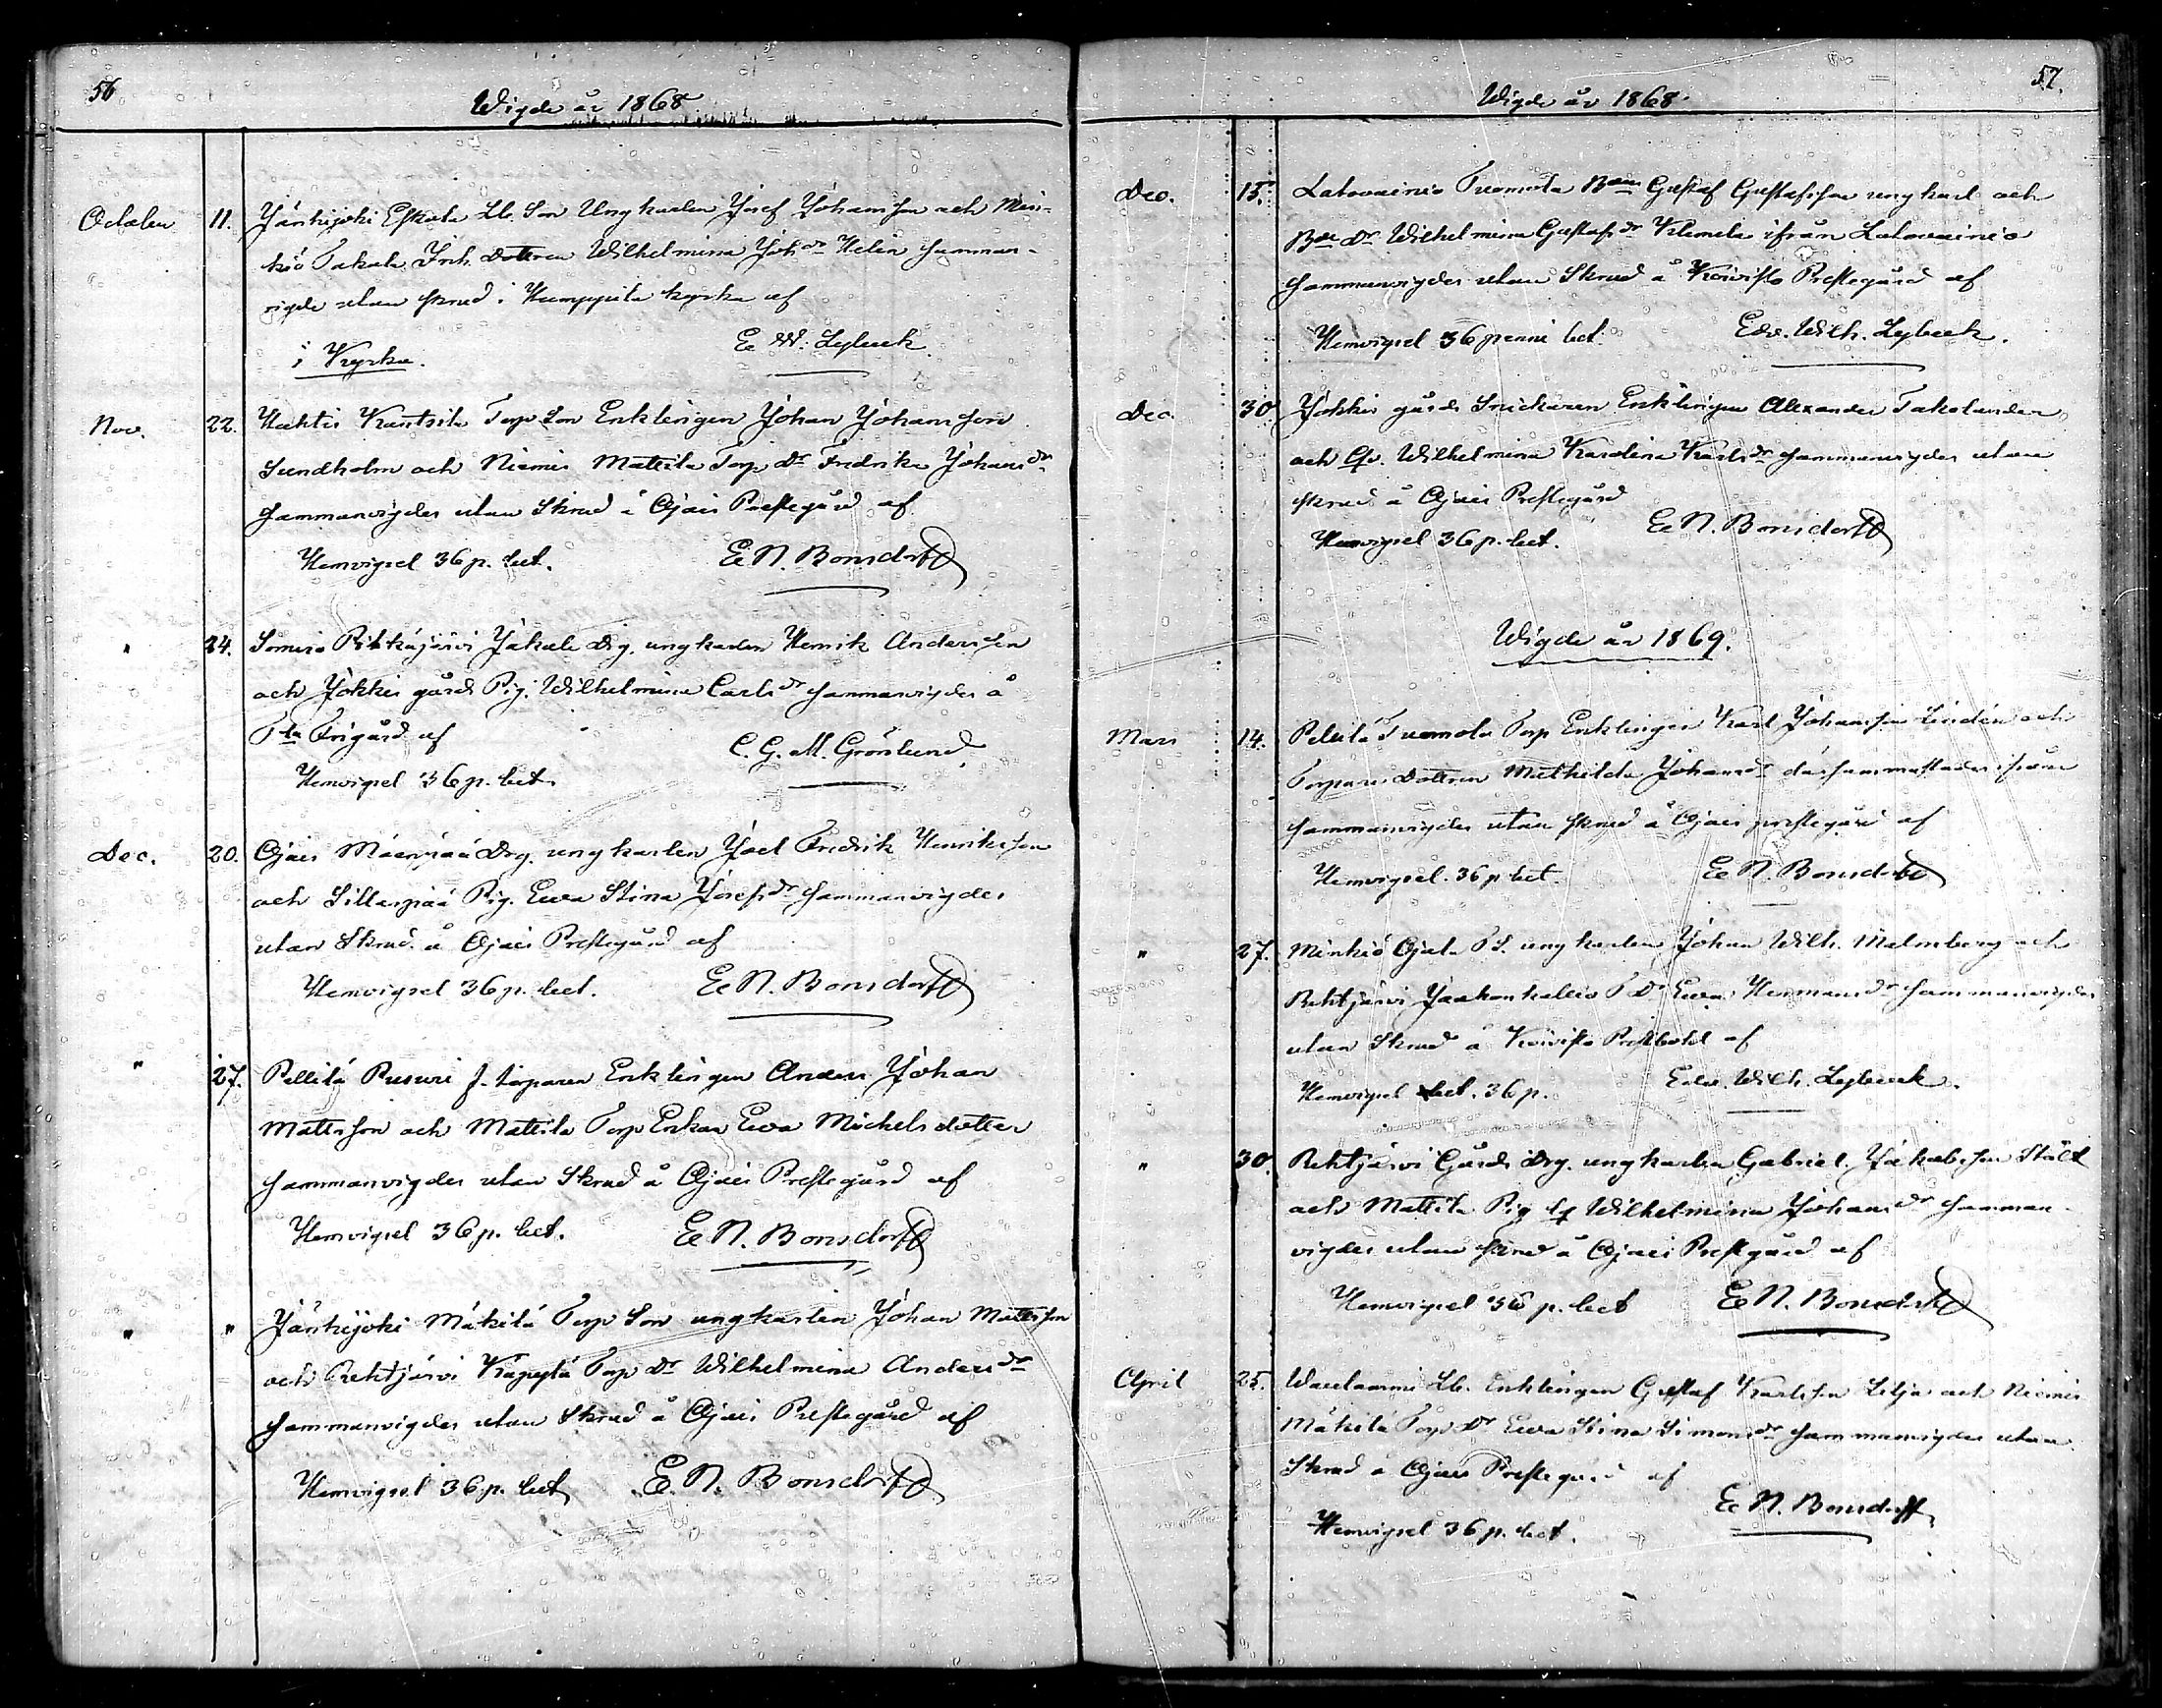 56
Wigde år 1868
October 11. Jänhijoki Eskola Sb. Son Ungkarlen Josef Johansson och Min-
kiö Takala Inh. dottren Wilhelmina Joh.dr Helin samman-
vigde utan skrud i Humppila kyrka af
i Kyrka. E. W. Lybeck
Nov. 22. Haktis Kantsila Torp Son Enklingen Johan Johansson
Sundholm och Niemis Mattila Torp Dr Fredrika Johansdr
sammanvigdes utan Skrud å Ojais Prestegård af
Hemvigsel 36 p. bet. E N. Bonsdorff
" 24. Somero Pitkäjärvi Jakala Drg. ungkarlen Henrik Andersson
och Jokkis gårds Pig. Wilhelmina Carlsdr sammanvigdes å
Frigård af C. G. M. Grönlund
Hemvigsel 36 p. bet.
Dec. 20. Ojais Mäenpää Drg. ungkarlen Joel Fredrik Henriksson
och Sillanpää Pig. Ewa Stina Josefsdr sammanvigdes
utan Skrud å Ojais Prestegård af
Hemvigsel 36 p. bet. E N. Bonsdorff
" 27. Pellilä Rusuri f. torparen Enklingen Anders Johan
Mattsson och Mattila Torp Enkan Ewa Michelsdotter
sammanvigdes utan Skrud å Ojais Prestegård af
Hemvigsel 36 p. bet. E N. Bonsdorff
" " Jänhijoki Mäkilä Torp Son ungkarlen Johan Mattsson
och Rehtijärvi Käpylä Torp Dr Wilhelmina Andersdr
sammanvigdes utan Skrud å Ojais Prestegård af
Hemvigsel 36 p. bet. E. N. Bonsdorff
57.
Wigde år 1868.
Dec. 15. Latovainio Tuomola Gustaf Gustafsson ungkarl och
Dr Wilhelmina Gustafsdr Klemela ifrån Latovainio
sammanvigdes utan Skrud å Koivisto Prestegård af
Hemvigsel 36 penni bet. Edv. Wilh. Lybeck.
Dec. 30 Jokkis gårds Snickaren Enklingen Alexander Takolander
och Wilhelmina Karolina Karlsdr sammanvigdes utan
skrud å Ojais Prestegård
Hemvigsel 36 p. bet. E N. Bonsdorff
Wigde år 1869.
Mars 14. Pellilä Tuomola Torp Enklingen Karl Johansson Lindén och
Torpare dottren Mathilda Johansdr därsammastädes ifrån
sammanvigdes utan skrud å Ojais prestegård af
Hemvigsel. 36 p bet. E N. Bonsdorff
" 27. Minkiö Ojala T S. ungkarlen Johan Wilh. Malmberg och
Rehtijärvi Jaakonkallio T Dr Ewa Hermansdr sammanvigdes
utan Skrud å Koivisto Prestbohl af
Hemvigsel bet. 36 p. Edv. Wilh. Lybeck.
" 30. Rehtijärvi Gårds Drg. ungkarlen Gabriel Jakobsson Ståhl
och Mattila Pig Wilhelmina Johansdr samman-
vigdes utan skrud å Ojais Prestgård af
Hemvigsel 36 p. bet E N. Bonsdorff
April 25. Waulammi Sb. Enklingen Gustaf Karlsson Lilja och Niemis
Mäkilä Torp Dr Ewa Stina Simonsdr sammanvigdes utan
Skrud å Ojais Prestegård af
Hemvigsel 36 p. bet. E N. Bonsdorff